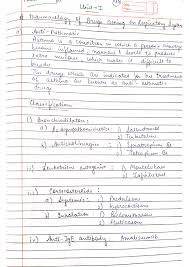 Unit-I
Pharmacology of Drugs acting on Respiratory System
Anti-Asthmatic
Asthma is a Condition in which a person's airway
become inflamed, narrow & swell & produce
extra mucous which makes it difficult to
breathe.
The drugs which are indicated for the treatment
of asthma are known as anti-asthmatic
drugs
Classification
i) Bronchodilators:
a) Sympathomimetic: i) Salbutamol
ii) Terbutaline
b) Anticholinergic: i) Ipratropium Br.
ii) Tiotropium Br.
ii) Leukotriene antagonist: Montelukast
Zafirlukast
iii) Corticosteroids:
a) Systemic: i) Prednisolone
ii) hydrocortisone
b) Inhalation: i) Beclomethasone
ii) Fluticasone
iv) Anti-IgE antibody: Omalizumab